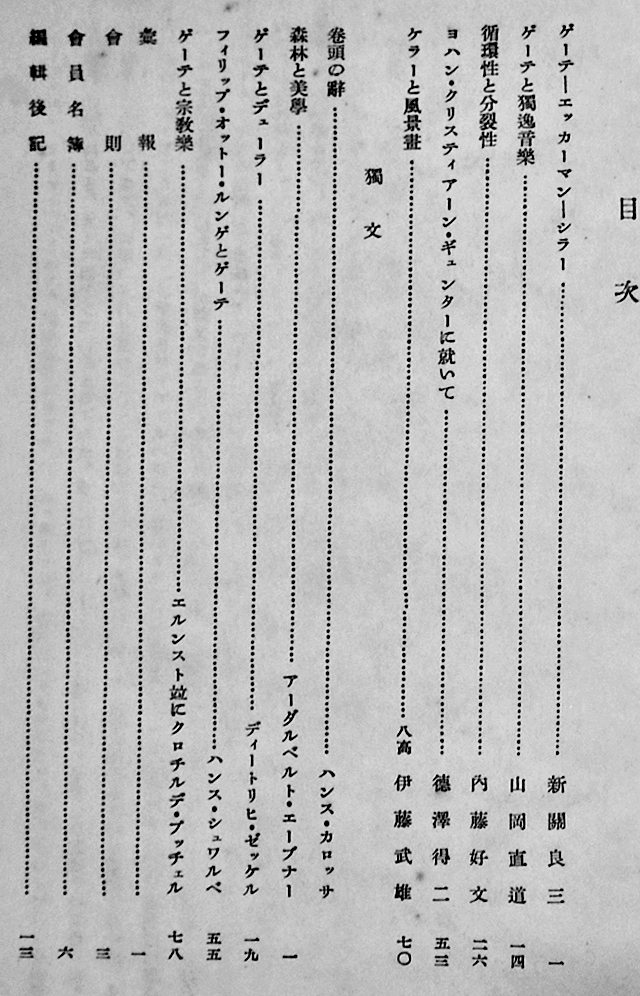 目次
ゲーテ―エッカーマン―シラー……新關良三 一
ゲーテと獨逸音樂……山岡直道 一四
循環性と分裂性……內藤好文 二六
ヨハン・クリスティアーン・ギュンターに就いて……德澤得二 五三
ケラーと風景畫……八高 伊藤武雄 七〇
獨文
卷頭の辭……ハンス・カロッサ
森林と美學……アーダルベルト・エープナー 一
ゲーテとデューラー……ディートリヒ・ゼッケル 一九
フィリップ・オットー・ルンゲとゲーテ……ハンス・シュワルベ 五五
ゲーテと宗敎樂……エルンスト竝にクロチルデ・プッチェル 七八
彙報……一
會則……三
會員名簿……六
編輯後記……一三